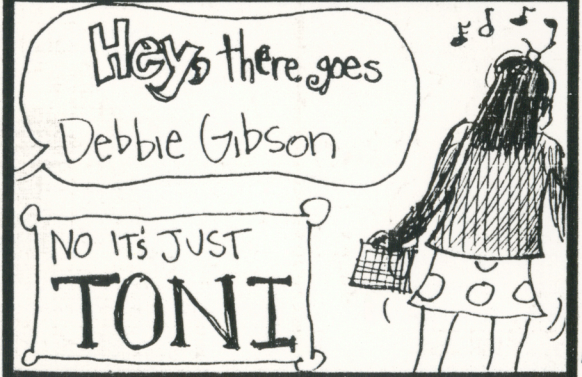 Hey, there goes
Debbie Gibson
NO IT'S JUST
TONI